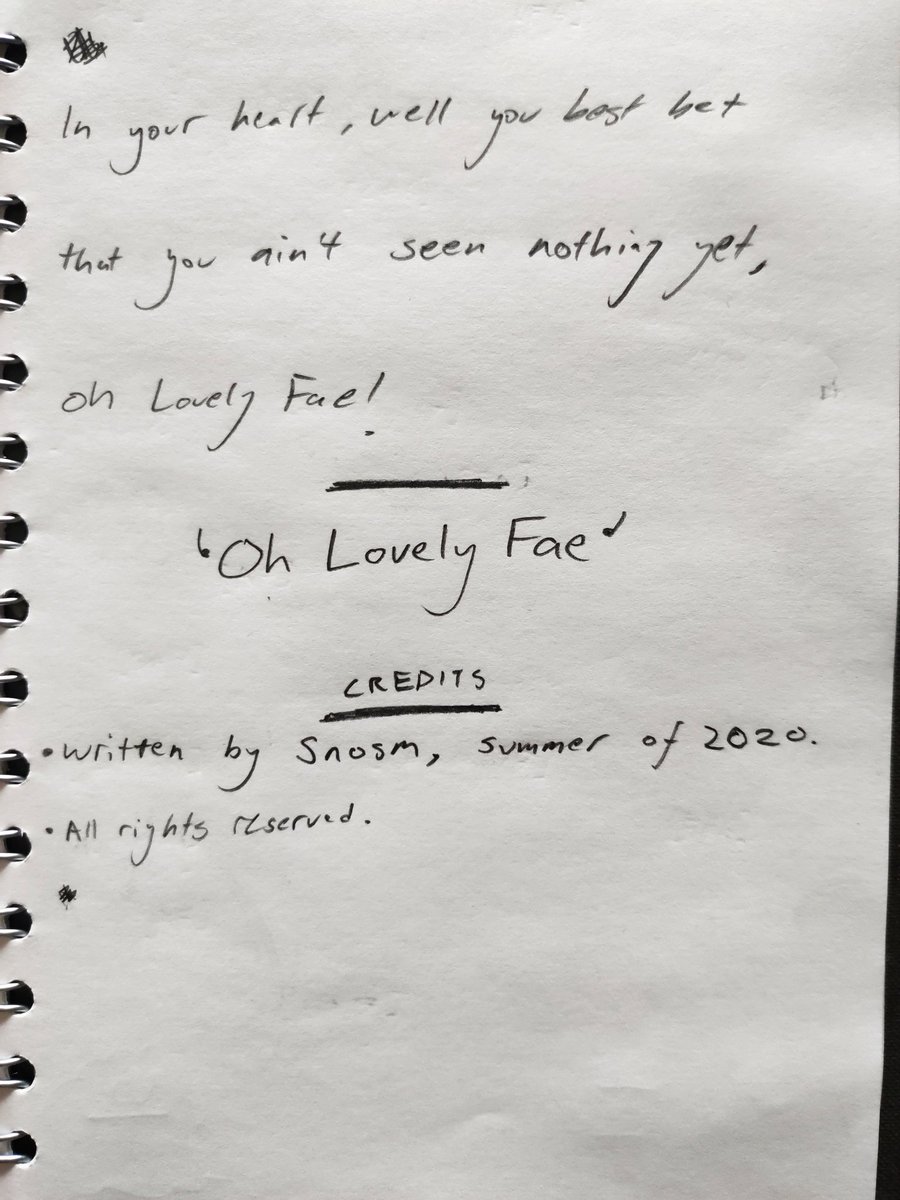 In your heart, well you best bet
that you ain't seen nothing yet,
oh Lovely Fae!
'Oh Lovely Fae'
CREDITS
• written by Snosm, summer of 2020.
• All rights reserved.